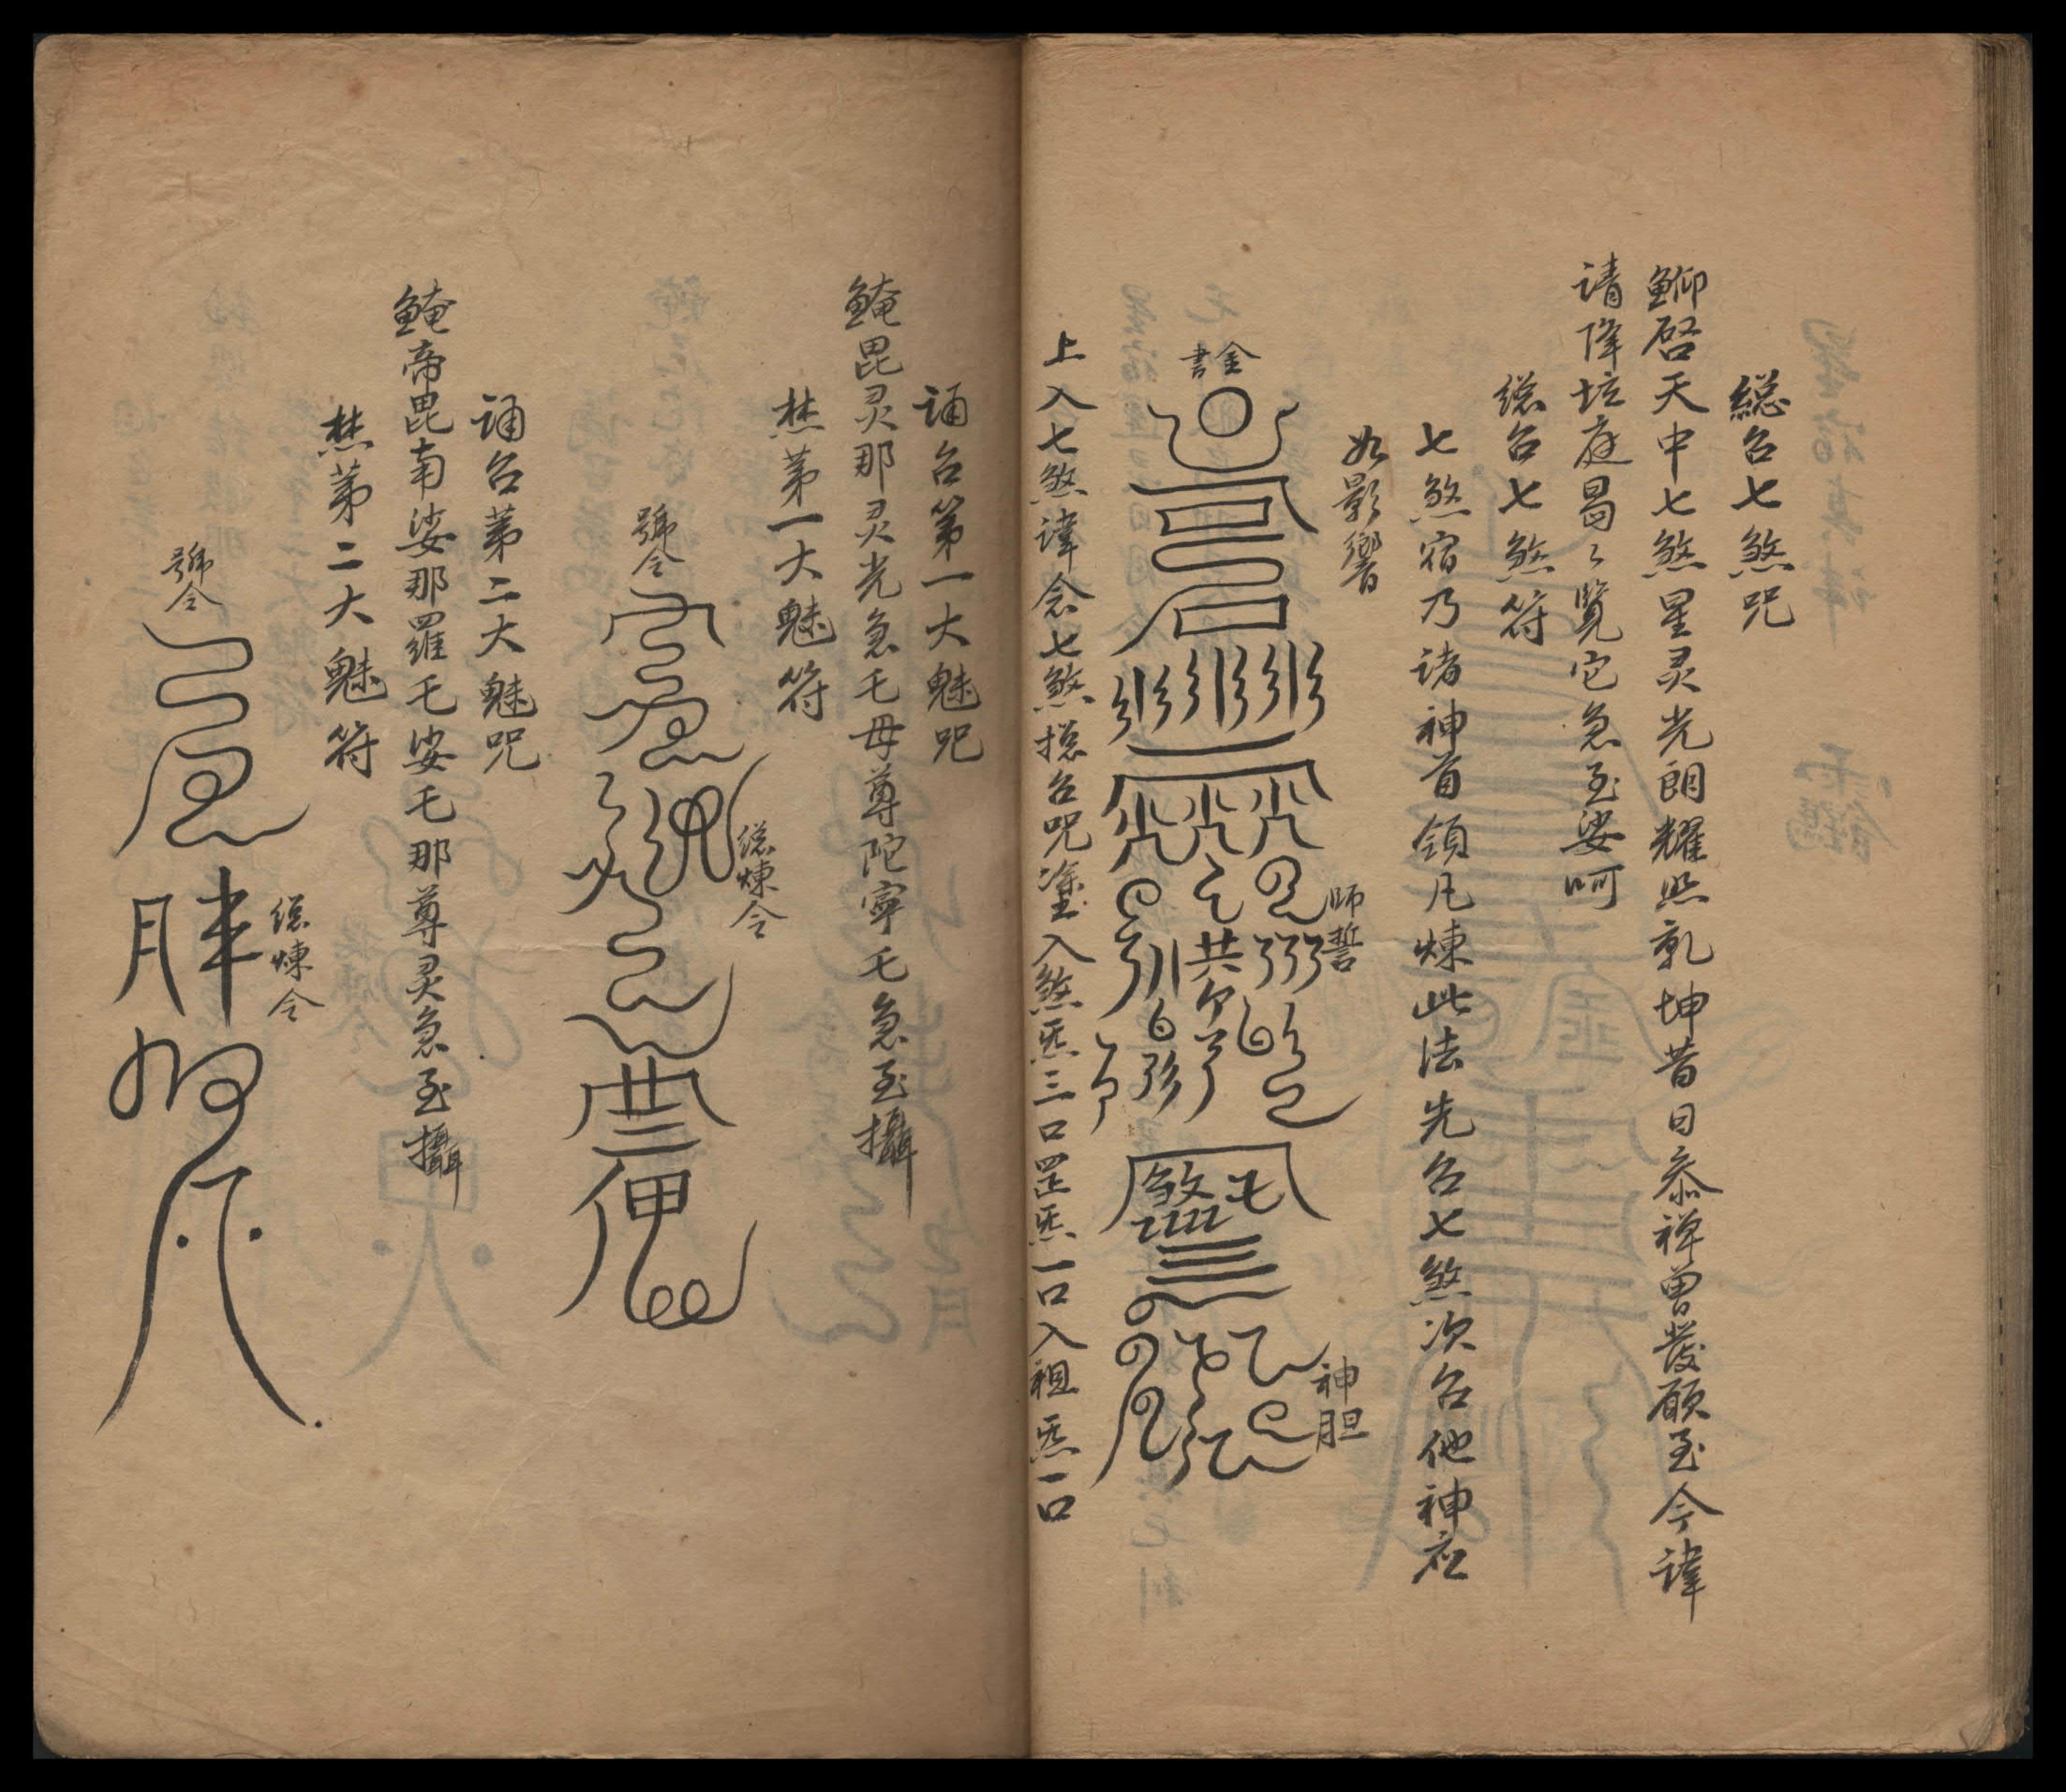 總召七煞咒
䲁启天中七煞星灵光朗耀照乾坤昔日叅禅曾發願至今諱
请降坛庭昌〻覽它急至娑呵
總召七煞符
七煞宿乃诸神首領凡煉此法先召七煞次召他神应
如影響
金書
師誓
神胆
上入七煞諱念七煞揔召咒塗入煞炁三口罡炁一口入祖炁一口
诵召第一大魅咒
䱋毘灵那灵光急乇母尊陀寧乇急至攝
焚第一大魅符
號令
總煉令
诵召第二大魅咒
䱋帝毘南娑那羅乇娑乇那尊灵急至攝
焚第二大魅符
號令
總煉令